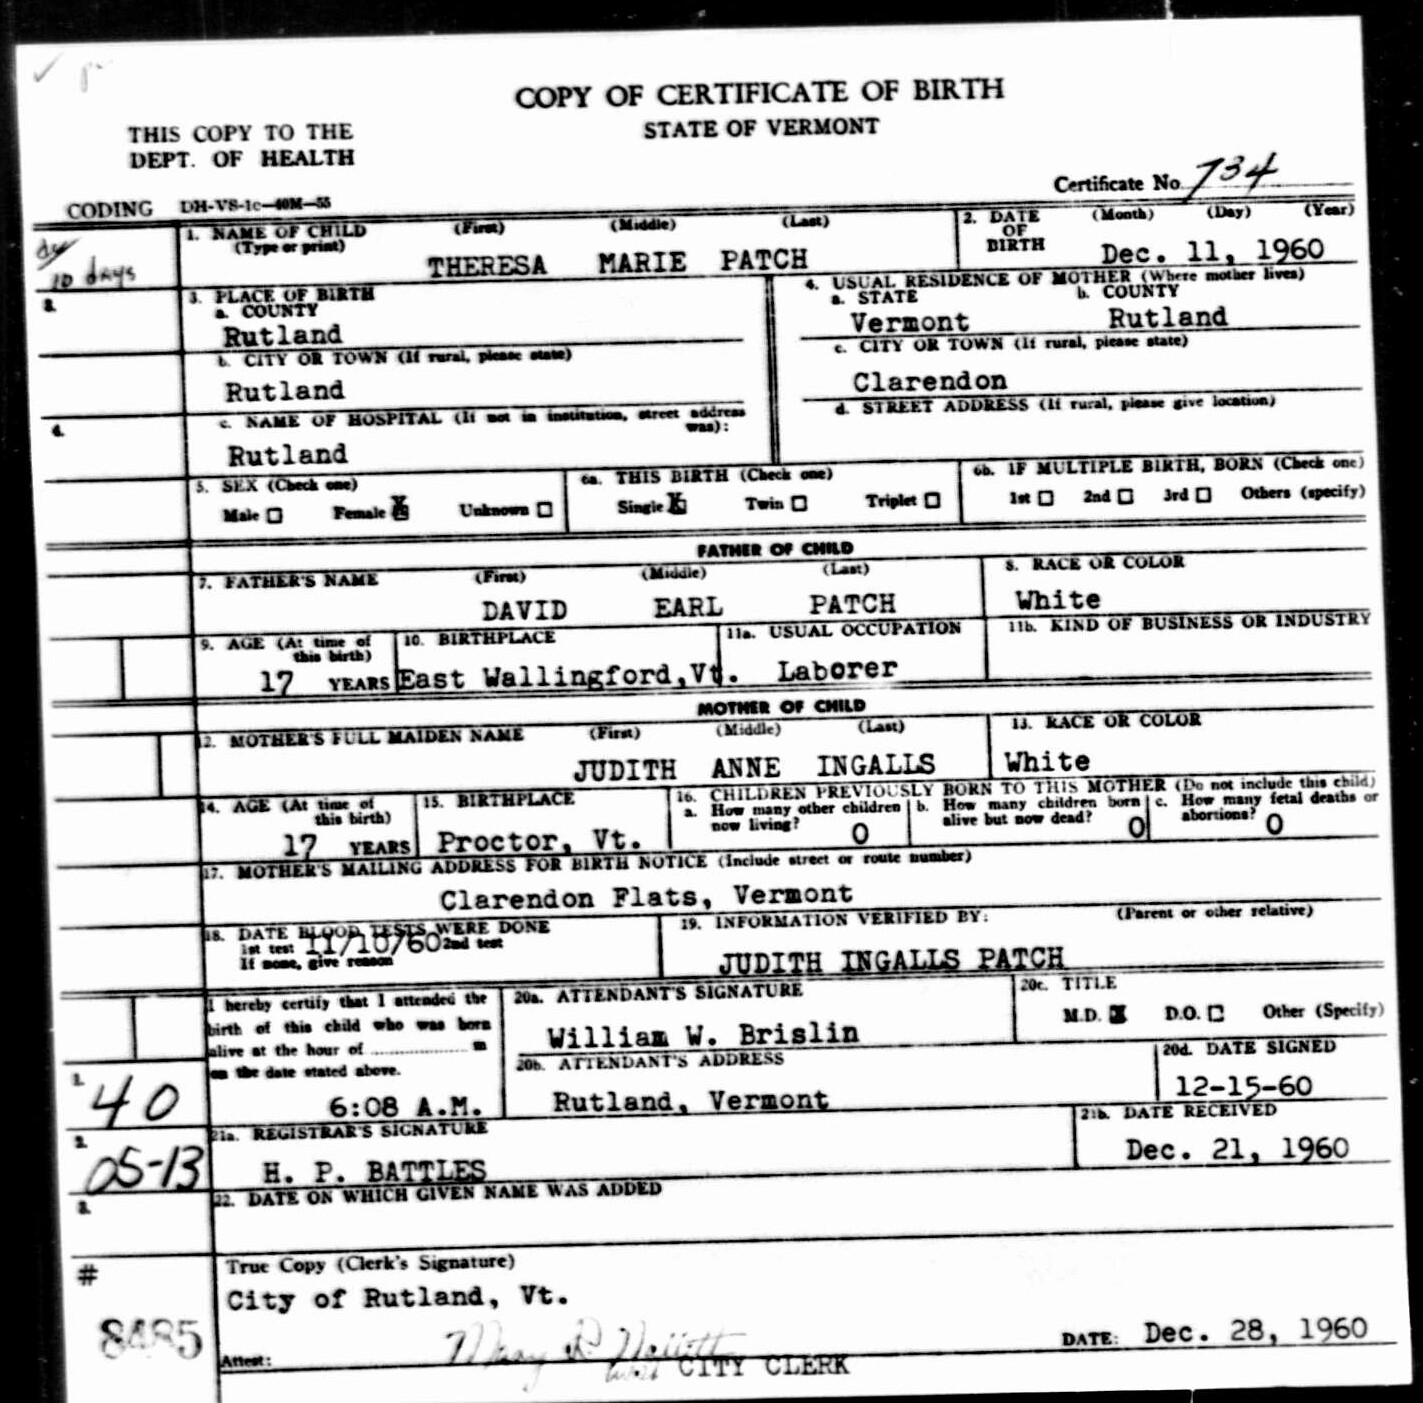 COPY OF CERTIFICATE OF BIRTH
STATE OF VERMONT
THIS COPY TO THE
DEPT. OF HEALTH
Certificate No. 734
CODING DH-VS-1c—40M—55
10 days
1. NAME OF CHILD (First) (Middle) (Last)
(Type or print)
THERESA MARIE PATCH
2. DATE OF BIRTH (Month) (Day) (Year)
Dec. 11, 1960
3.
3. PLACE OF BIRTH
a. COUNTY
Rutland
b. CITY OR TOWN (If rural, please state)
Rutland
4.
c. NAME OF HOSPITAL (If not in institution, street address was):
Rutland
4. USUAL RESIDENCE OF MOTHER (Where mother lives)
a. STATE b. COUNTY
Vermont Rutland
c. CITY OR TOWN (If rural, please state)
Clarendon
d. STREET ADDRESS (If rural, please give location)
5. SEX (Check one)
Male ☐ Female ☒ Unknown ☐
6a. THIS BIRTH (Check one)
Single ☒ Twin ☐ Triplet ☐
6b. IF MULTIPLE BIRTH, BORN (Check one)
1st ☐ 2nd ☐ 3rd ☐ Others (specify)
FATHER OF CHILD
7. FATHER'S NAME (First) (Middle) (Last)
DAVID EARL PATCH
8. RACE OR COLOR
White
9. AGE (At time of this birth)
17 YEARS
10. BIRTHPLACE
East Wallingford,Vt.
11a. USUAL OCCUPATION
Laborer
11b. KIND OF BUSINESS OR INDUSTRY
MOTHER OF CHILD
12. MOTHER'S FULL MAIDEN NAME (First) (Middle) (Last)
JUDITH ANNE INGALLS
13. RACE OR COLOR
White
14. AGE (At time of this birth)
17 YEARS
15. BIRTHPLACE
Proctor, Vt.
16. CHILDREN PREVIOUSLY BORN TO THIS MOTHER (Do not include this child)
a. How many other children now living? 0
b. How many children born alive but now dead? 0
c. How many fetal deaths or abortions? 0
17. MOTHER'S MAILING ADDRESS FOR BIRTH NOTICE (Include street or route number)
Clarendon Flats, Vermont
18. DATE BLOOD TESTS WERE DONE
1st test 11/10/60 2nd test
If none, give reason
19. INFORMATION VERIFIED BY: (Parent or other relative)
JUDITH INGALLS PATCH
I hereby certify that I attended the
birth of this child who was born
alive at the hour of .................... m
on the date stated above.
6:08 A.M.
20a. ATTENDANT'S SIGNATURE
William W. Brislin
20c. TITLE
M.D. ☒ D.O. ☐ Other (Specify)
20b. ATTENDANT'S ADDRESS
Rutland, Vermont
20d. DATE SIGNED
12-15-60
1. 40
21a. REGISTRAR'S SIGNATURE
H. P. BATTLES
21b. DATE RECEIVED
Dec. 21, 1960
2. 05-13
22. DATE ON WHICH GIVEN NAME WAS ADDED
3.
#
8485
True Copy (Clerk's Signature)
City of Rutland, Vt.
Attest: Mary
CITY CLERK
DATE: Dec. 28, 1960